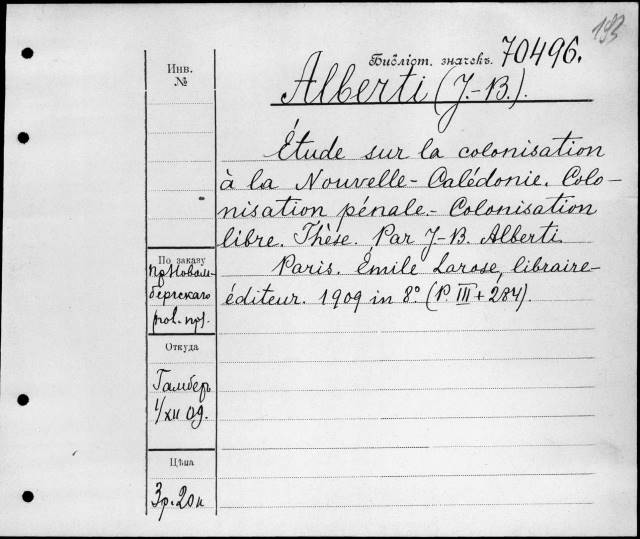 193
Библіот. значекъ. 70496.
Alberti (J.-B.).
Инв.
№
Étude sur la colonisation
à la Nouvelle-Calédonie. Colo-
nisation pénale.- Colonisation
libre. Thèse. Par J-B. Alberti
Paris. Émile Larose, libraire-
éditeur. 1909 in 8° (P. III + 284).
По заказу
пр Новом-
бергскаго
Откуда
Гамберъ
1/XII 09.
Цѣна
3р.20к